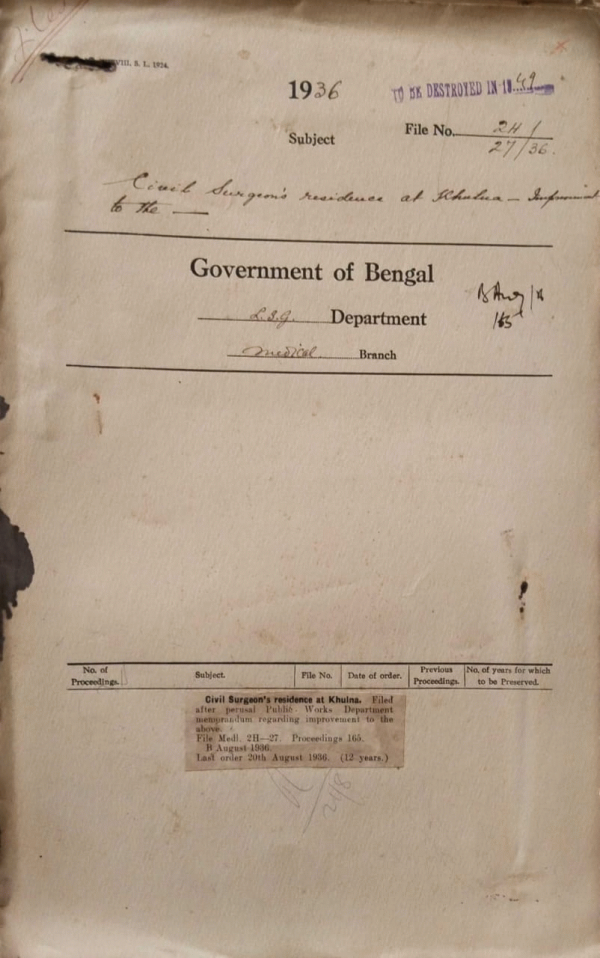 Filed
VIII. S. L. 1924.
1936
TO BE DESTROYED IN 1949
Subject
File No. 2H/
27/36.
Civil Surgeon's residence at Khulna —
to the —
Government of Bengal
L.S.G. Department
B Aug/36
/165
Medical Branch
No. of Proceedings.
Subject.
File No.
Date of order.
Previous Proceedings.
No. of years for which to be Preserved.
Civil Surgeon's residence at Khulna. Filed
after perusal Public Works Department
memorandum regarding improvement to the
above.
File Medl. 2H—27. Proceedings 165.
B August 1936.
Last order 20th August 1936. (12 years.)